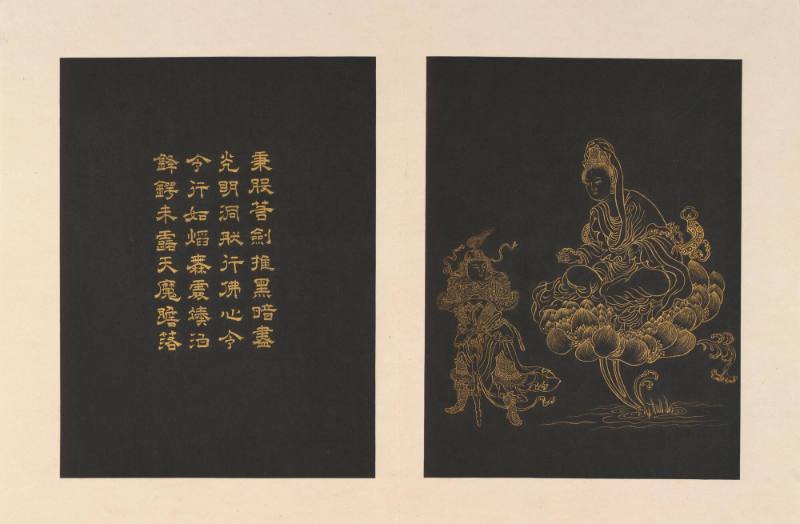 秉般若劍推黑暗盡
光明洞然行佛心令
令行如焰震
鋒鍔未露天魔膽落